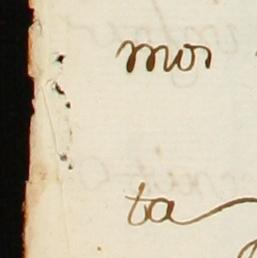 mos
ta